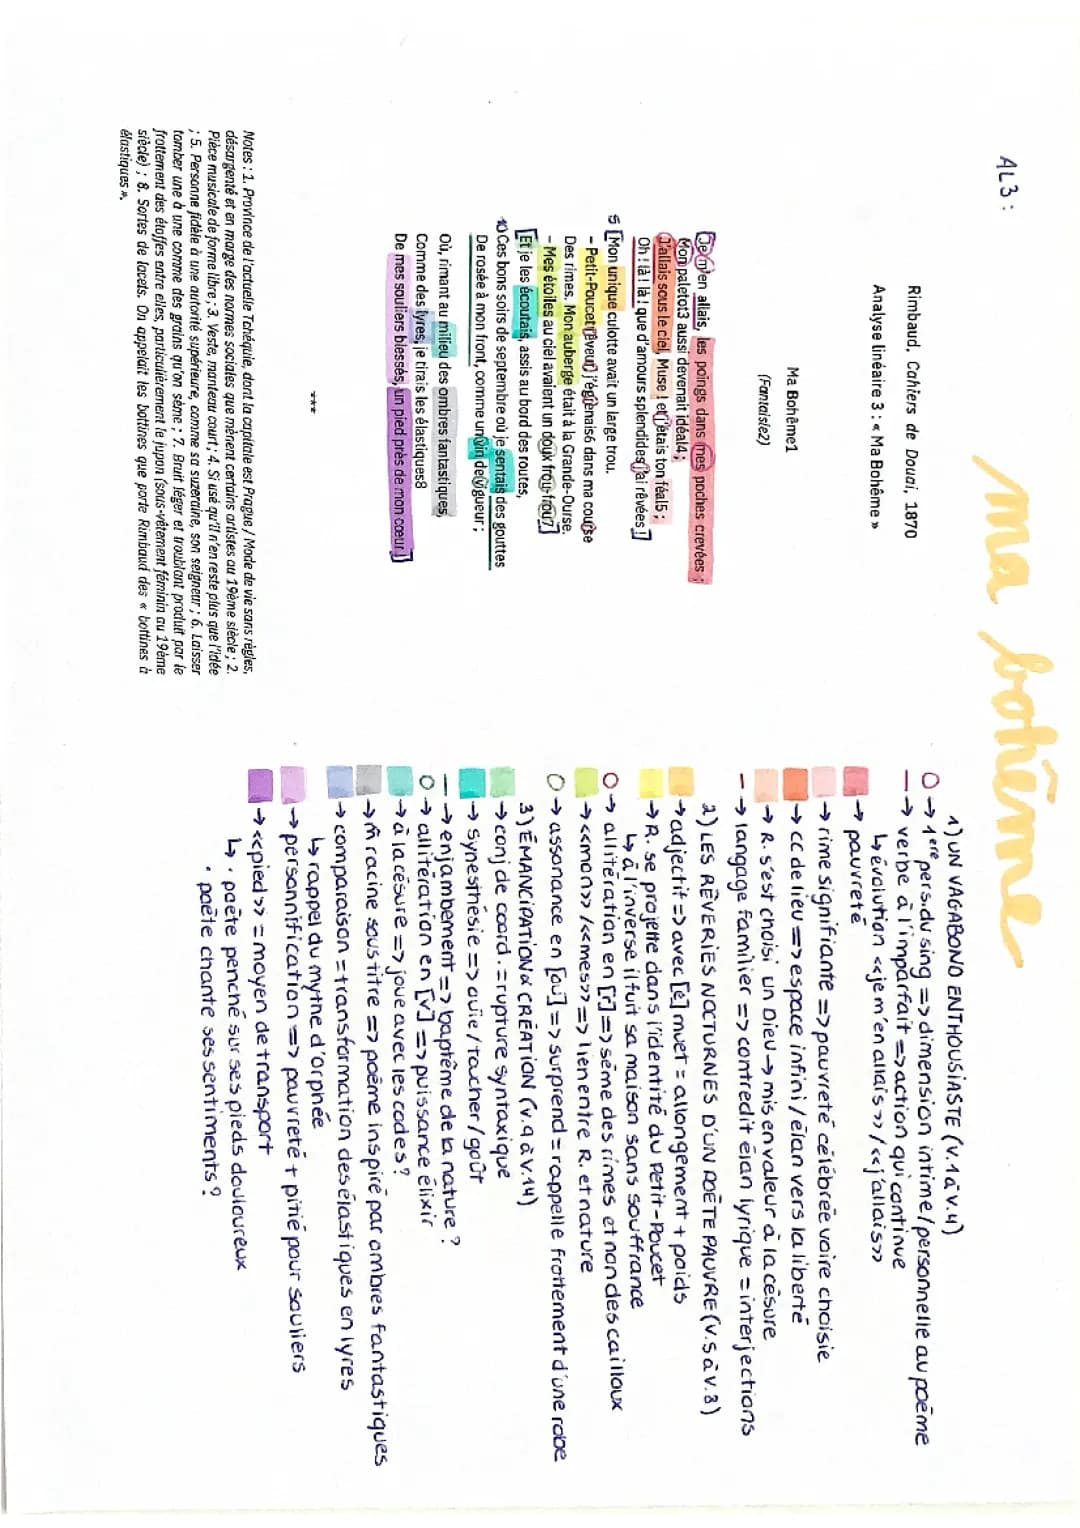 ma bohême
AL3 :
Rimbaud, Cahiers de Douai, 1870
Analyse linéaire 3 : « Ma Bohême »
Ma Bohême1
(Fantaisie2)
Je m'en allais, les poings dans mes poches crevées ;
Mon paletot3 aussi devenait idéal4 ;
J'allais sous le ciel, Muse ! et j'étais ton féal5 ;
Oh ! là ! là ! que d'amours splendides j'ai rêvées !
5 Mon unique culotte avait un large trou.
- Petit-Poucet rêveur, j'égrenais6 dans ma course
Des rimes. Mon auberge était à la Grande-Ourse.
- Mes étoiles au ciel avaient un doux frou-frou7
Et je les écoutais, assis au bord des routes,
10 Ces bons soirs de septembre où je sentais des gouttes
De rosée à mon front, comme un vin de vigueur ;
Où, rimant au milieu des ombres fantastiques,
Comme des lyres, je tirais les élastiques8
De mes souliers blessés, un pied près de mon cœur !
***
Notes : 1. Province de l'actuelle Tchéquie, dont la capitale est Prague / Mode de vie sans règles,
désargenté et en marge des normes sociales que mènent certains artistes au 19ème siècle ; 2.
Pièce musicale de forme libre ; 3. Veste, manteau court ; 4. Si usé qu'il n'en reste plus que l'idée
; 5. Personne fidèle à une autorité supérieure, comme sa suzeraine, son seigneur ; 6. Laisser
tomber une à une comme des grains qu'on sème ; 7. Bruit léger et troublant produit par le
frottement des étoffes entre elles, particulièrement le jupon (sous-vêtement féminin au 19ème
siècle) ; 8. Sortes de lacets. On appelait les bottines que porte Rimbaud des « bottines à
élastiques ».
1) UN VAGABOND ENTHOUSIASTE (v.1 à v.4)
→ 1ère pers. du sing => dimension intime/personnelle au poème
→ verbe à l'imparfait => action qui continue
↳ évolution <<je m'en allais>> / <<j'allais>>
→ pauvreté
→ rime signifiante => pauvreté célébrée voire choisie
→ cc de lieu => espace infini / élan vers la liberté
→ R. s'est choisi un Dieu → mis en valeur à la césure
→ langage familier => contredit élan lyrique = interjections
2) LES RÊVERIES NOCTURNES D'UN POÈTE PAUVRE (v.5 à v.8)
→ adjectif => avec [e] muet = allongement + poids
→ R. se projette dans l'identité du Petit-Poucet
↳ à l'inverse il fuit sa maison sans souffrance
→ allitération en [r] => sème des rimes et non des cailloux
→ <<mon>> / <<mes>> => lien entre R. et nature
→ assonance en [ou] => surprend = rappelle frottement d'une robe
3) ÉMANCIPATION & CRÉATION (v.9 à v.14)
→ conj de coord. = rupture syntaxique
→ synesthésie => ouïe / toucher / goût
→ enjambement => baptême de la nature ?
→ allitération en [v] => puissance élixir
→ à la césure => joue avec les codes ?
→ m̂ racine sous titre => poème inspiré par ombres fantastiques
→ comparaison = transformation des élastiques en lyres
↳ rappel du mythe d'Orphée
→ personnification => pauvreté + pitié pour souliers
→ <<pied>> = moyen de transport
↳ • poète penché sur ses pieds douloureux
• poète chante ses sentiments ?